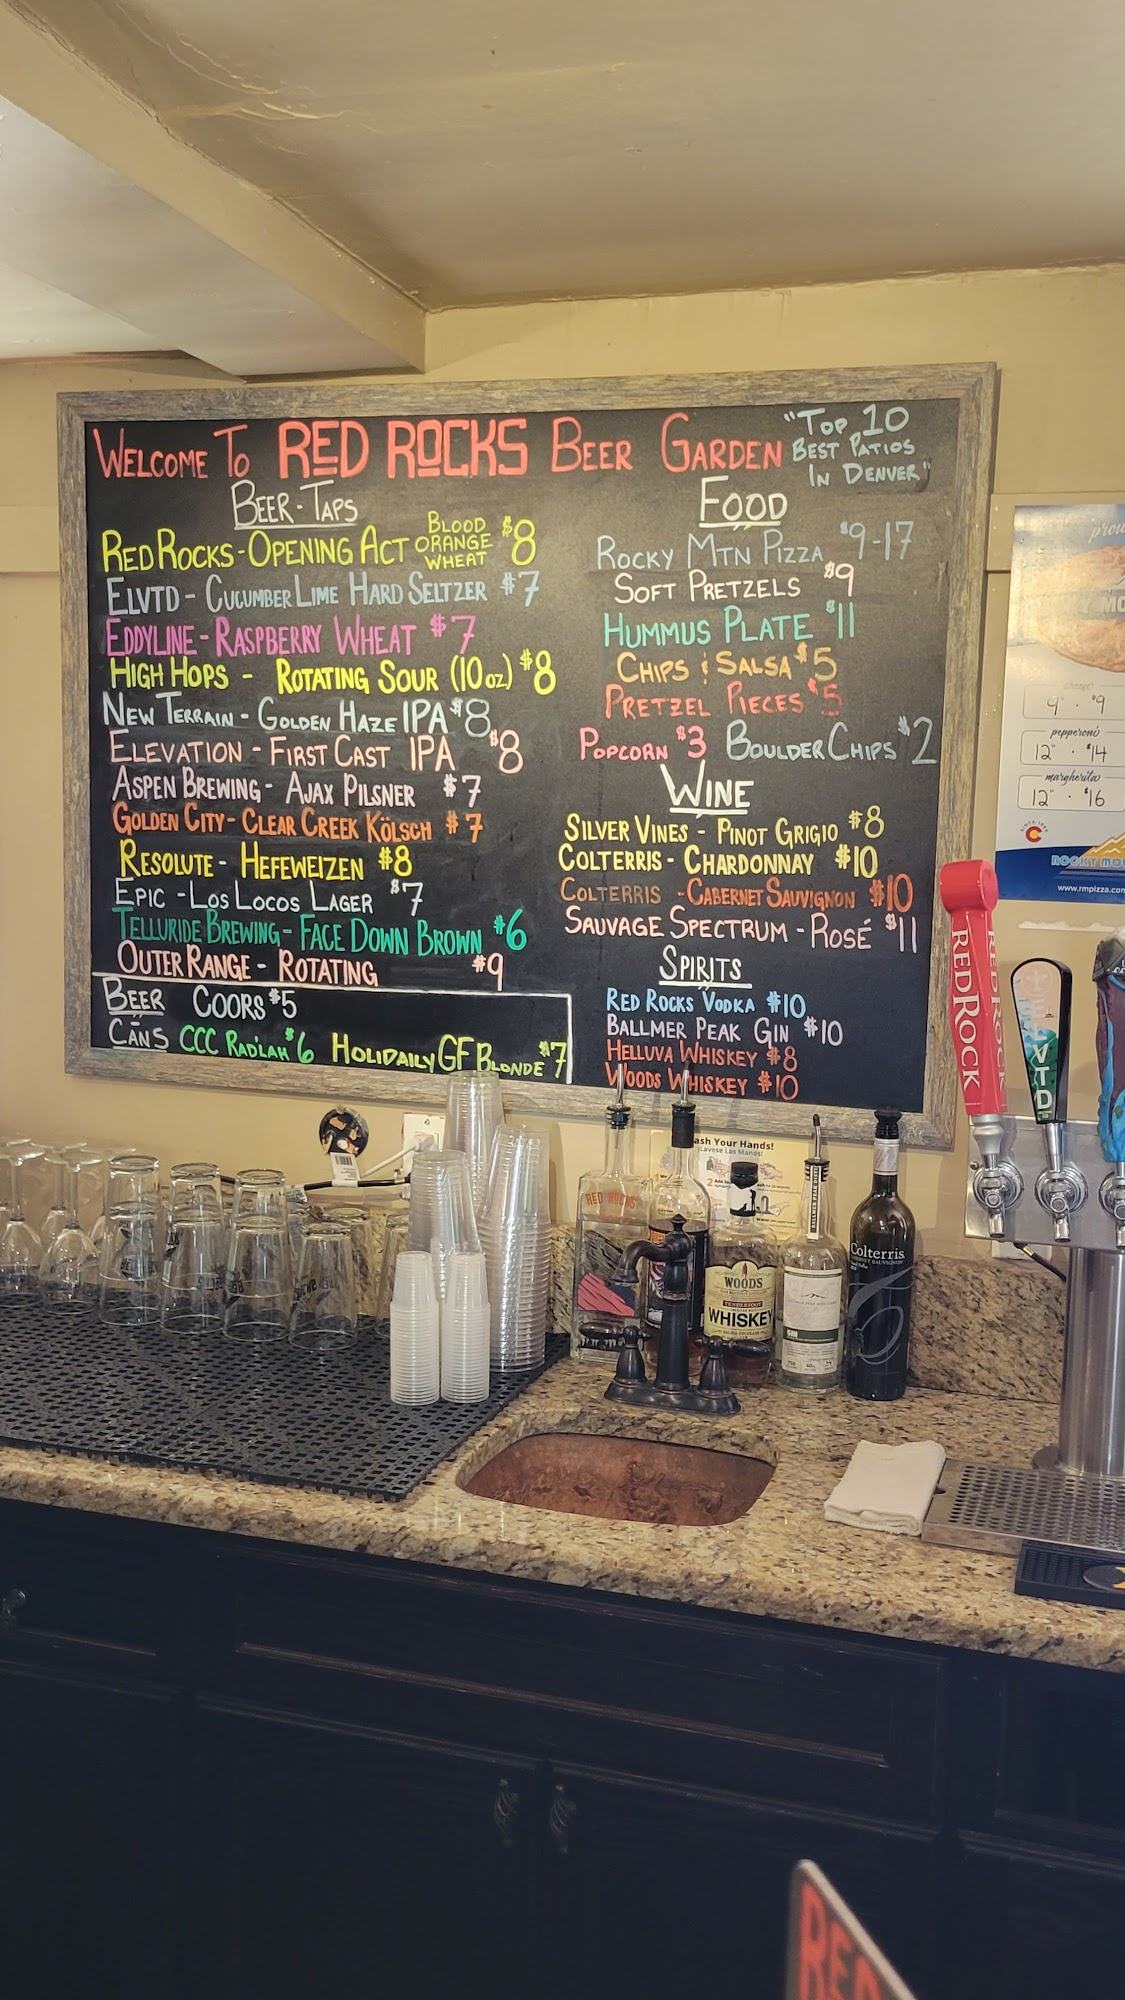 WELCOME TO RED ROCKS BEER GARDEN
"TOP 10
BEST PATIOS
IN DENVER"
BEER-TAPS
RED ROCKS-OPENING ACT BLOOD ORANGE WHEAT $8
ELVTD - CUCUMBER LIME HARD SELTZER $7
EDDYLINE - RASPBERRY WHEAT $7
HIGH HOPS - ROTATING SOUR (10oz.) $8
NEW TERRAIN - GOLDEN HAZE IPA $8
ELEVATION - FIRST CAST IPA $8
ASPEN BREWING - AJAX PILSNER $7
GOLDEN CITY - CLEAR CREEK KÖLSCH $7
RESOLUTE - HEFEWEIZEN $8
EPIC - LOS LOCOS LAGER $7
TELLURIDE BREWING - FACE DOWN BROWN $6
OUTER RANGE - ROTATING $9
BEER CANS
COORS $5
CCC RAD'LAH $6 HOLIDAILY GF BLONDE $7
FOOD
ROCKY MTN PIZZA $9-17
SOFT PRETZELS $9
HUMMUS PLATE $11
CHIPS & SALSA $5
PRETZEL PIECES $5
POPCORN $3 BOULDER CHIPS $2
WINE
SILVER VINES - PINOT GRIGIO $8
COLTERRIS - CHARDONNAY $10
COLTERRIS - CABERNET SAUVIGNON $10
SAUVAGE SPECTRUM - ROSÉ $11
SPIRITS
RED ROCKS VODKA $10
BALLMER PEAK GIN $10
HELLUVA WHISKEY $8
WOODS WHISKEY $10
9" · $9
pepperoni
12" · $14
margherita
12" · $16
ROCKY MOU
www.rmpizza.com
RED ROCK
RED ROCK
VTD
ash Your Hands!
¡Lavese Las Manos!
RED ROCKS
WOODS
TENDERFOOT
WHISKEY
GIN
Colterris
CABERNET SAUVIGNON
RED